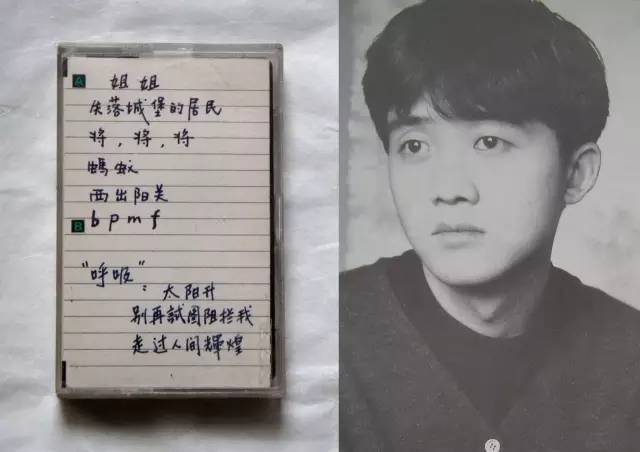 A 姐姐
失落城堡的居民
将，将，将
蚂蚁
西出阳关
B b p m f
"呼吸"
: 太阳升
别再試图阻拦我
走过人间輝煌